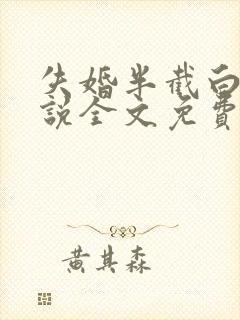 失婚半截白
说全文免费
黄其森